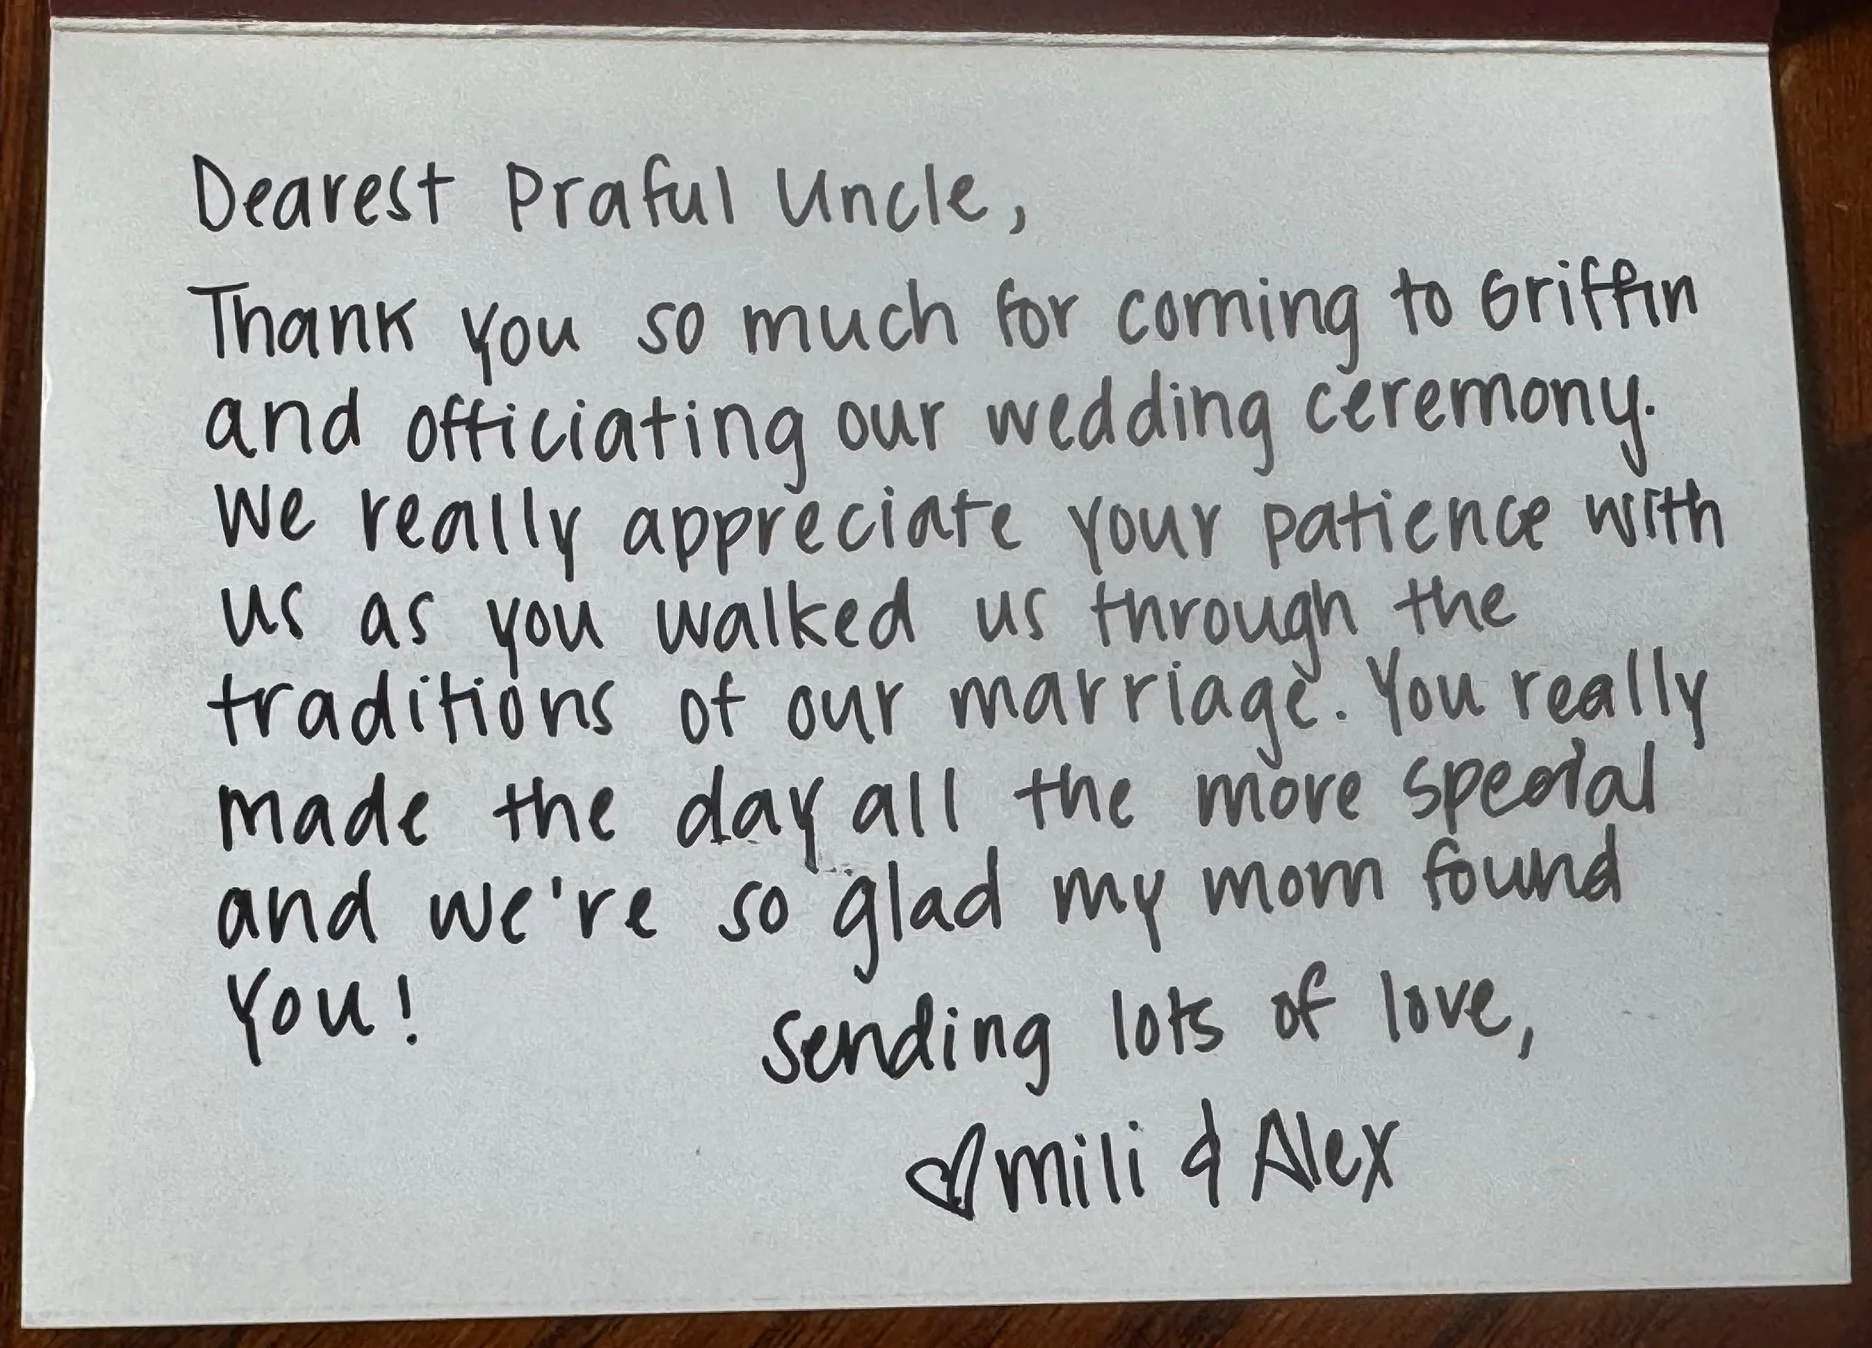 Dearest Praful Uncle,
Thank you so much for coming to Griffin
and officiating our wedding ceremony.
We really appreciate your patience with
us as you walked us through the
traditions of our marriage. You really
made the day all the more special
and we're so glad my mom found
you!
Sending lots of love,
♡ Mili & Alex